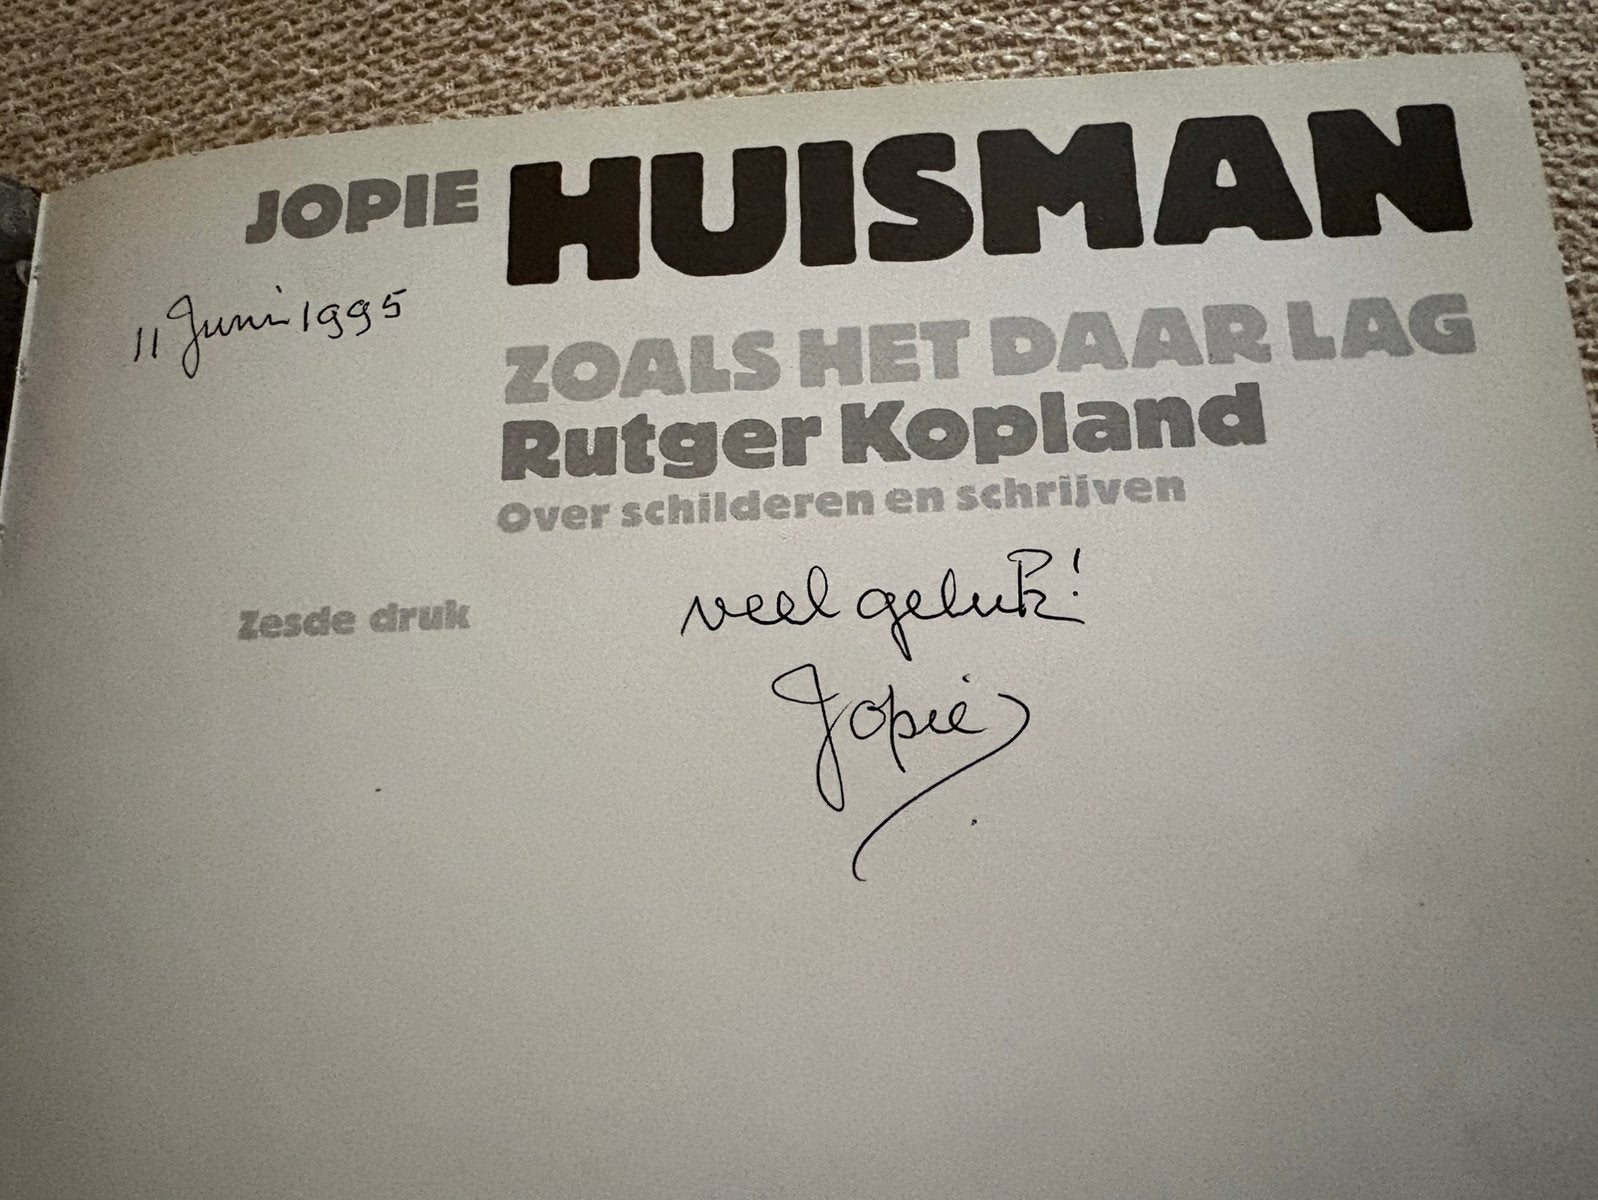 JOPIE HUISMAN
11 Juni 1995
ZOALS HET DAAR LAG
Rutger Kopland
Over schilderen en schrijven
veel geluk!
Zesde druk
Jopie